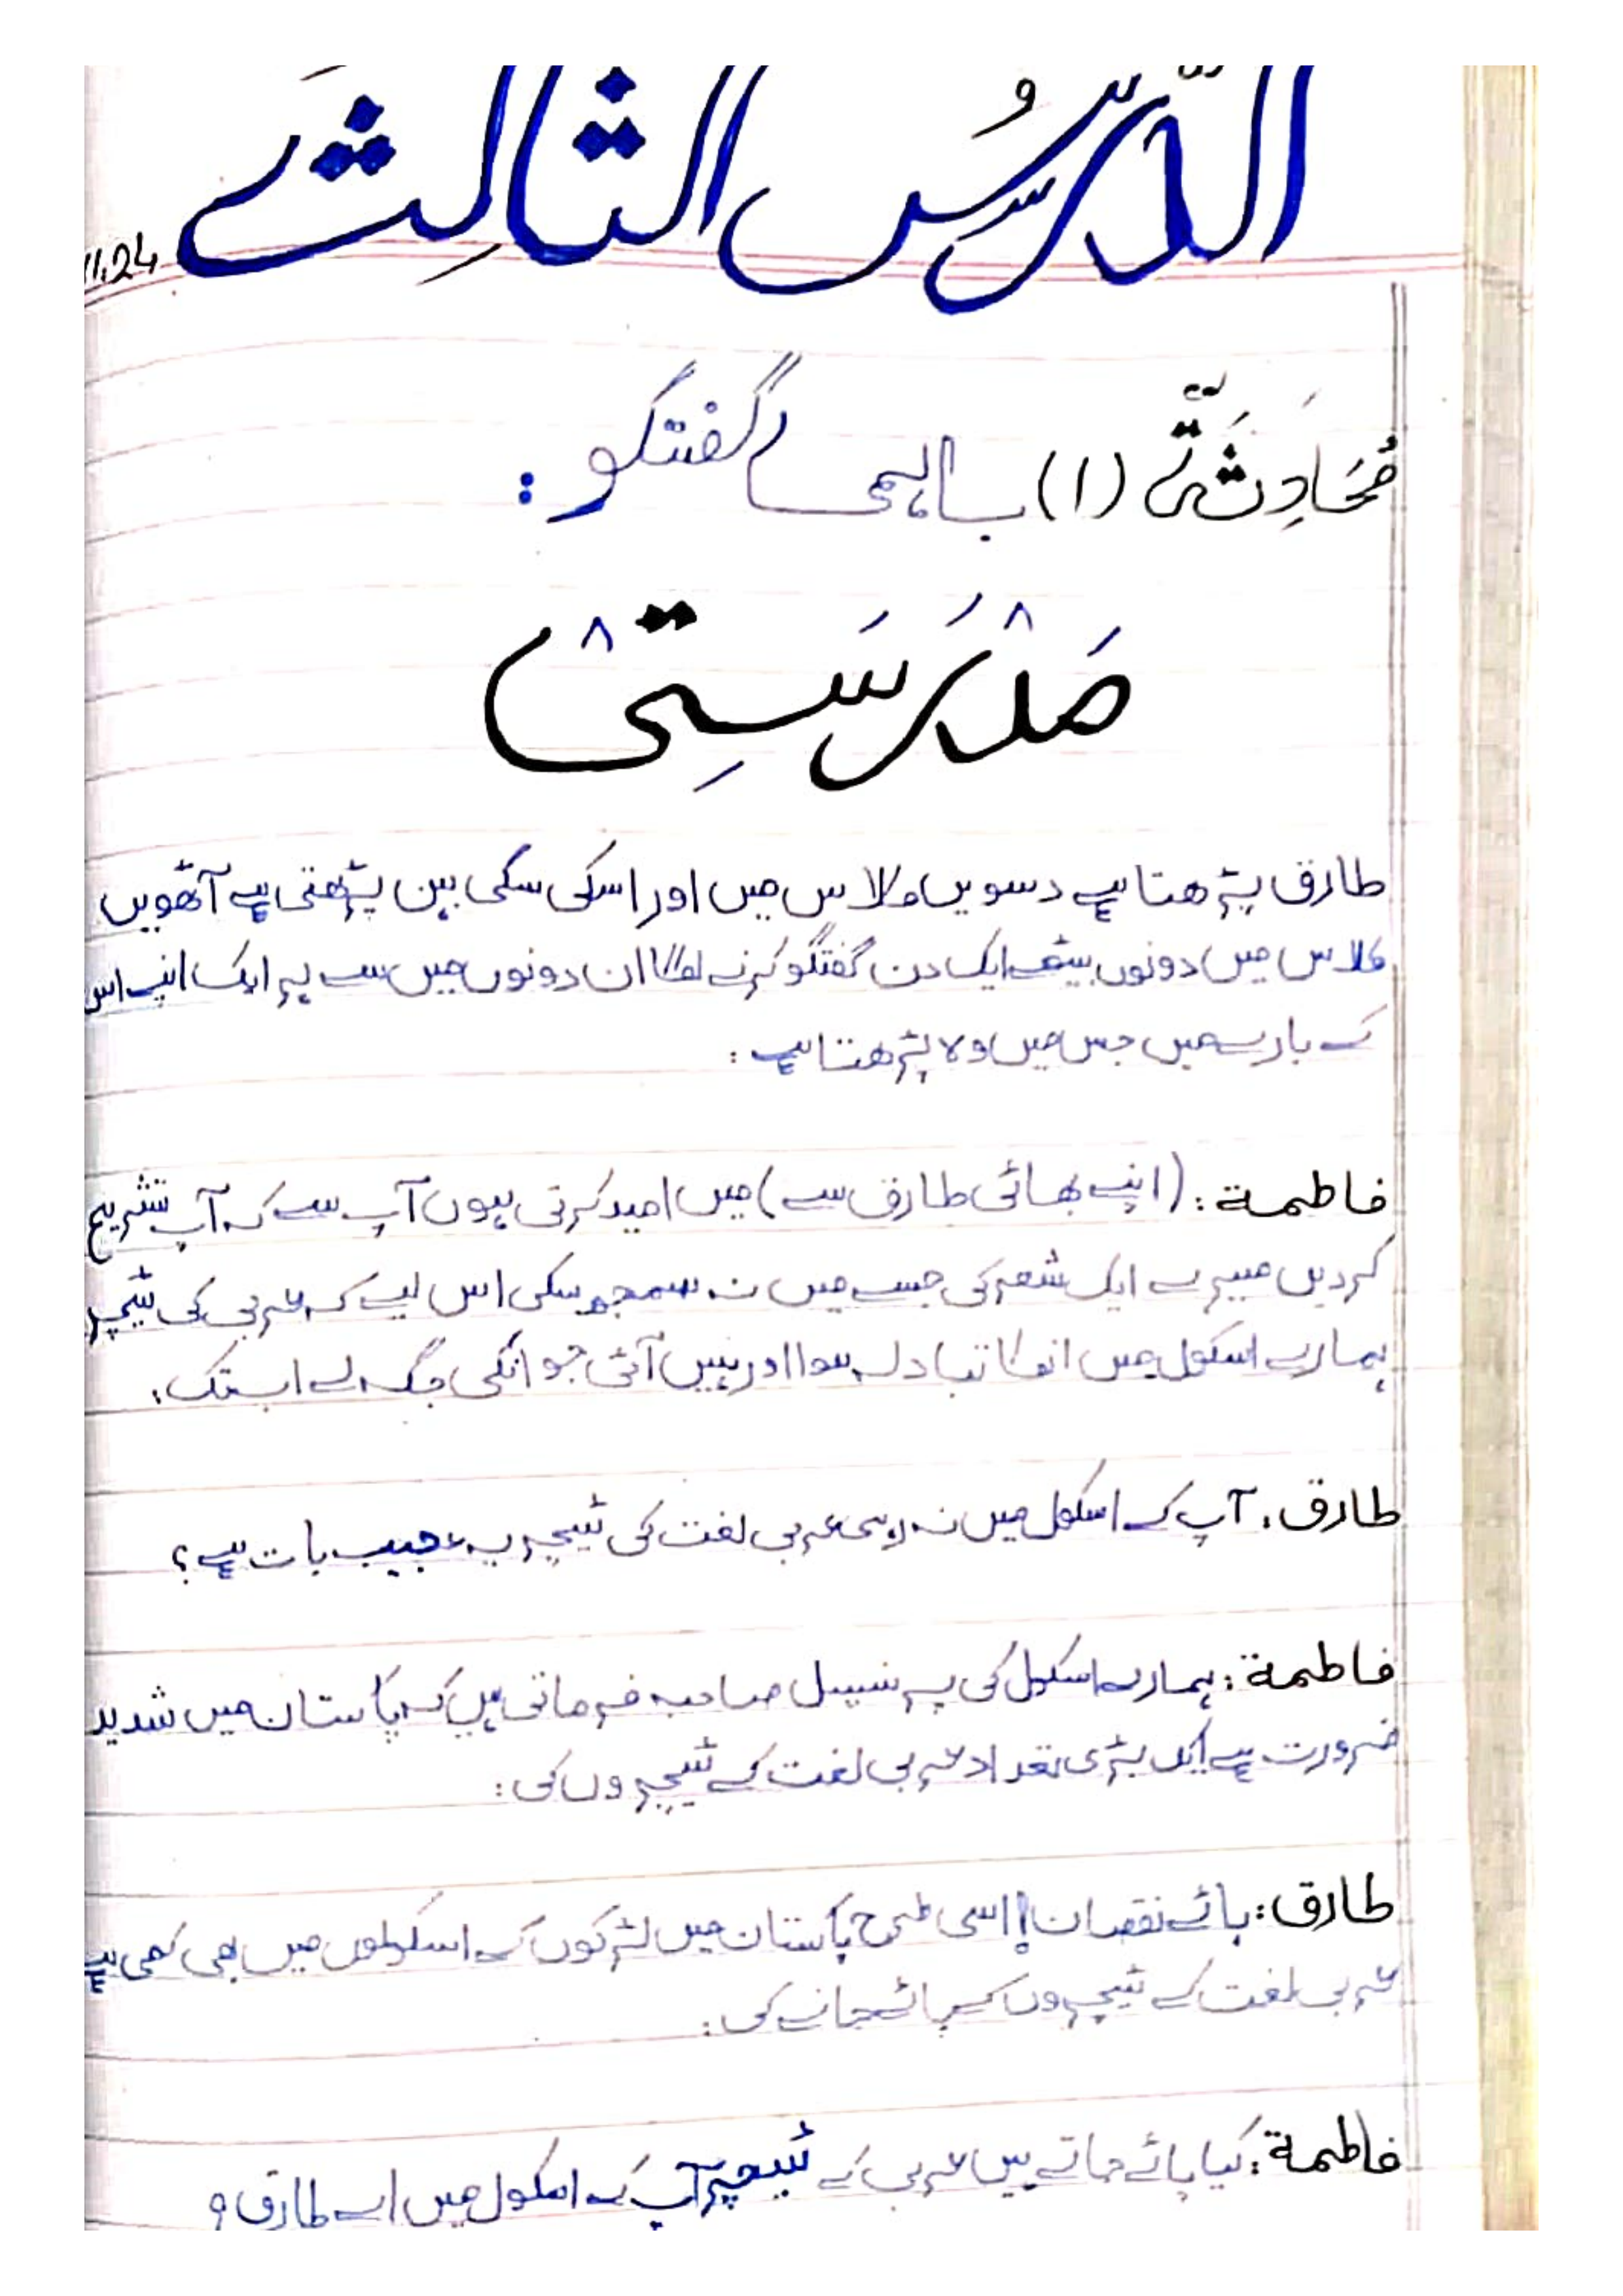 الدَّرْسُ الثَّالِثُ
11.24
مُحَادَثَةٌ (۱) باہمی گفتگو :
مَدْرَسَتِیْ
طارق پڑھتا ہے دسویں کلاس میں اور اسکی سگی بہن پڑھتی ہے آٹھویں
کلاس میں دونوں بیٹھے ایک دن گفتگو کرنے لگا ان دونوں میں سے ہر ایک اپنے اس
کے بارے میں جس میں وہ پڑھتا ہے :
فاطمة : (اپنے بھائی طارق سے) میں امید کرتی ہوں آپ سے کہ آپ تشریح
کردیں میرے ایک شعر کی جسے میں نہ سمجھ سکی اس لیے کہ عربی کی ٹیچر
ہمارے اسکول میں انکا تبادلہ ہوا اور نہیں آئی جو انکی جگہ لے اب تک :
طارق : آپ کے اسکول میں نہ رہی عربی لغت کی ٹیچر یہ عجیب بات ہے ؟
فاطمة : ہمارے اسکول کی پرنسپل صاحبہ فرماتی ہیں کہ پاکستان میں شدید
ضرورت ہے ایک بڑی تعداد عربی لغت کے ٹیچروں کی :
طارق : ہائے نقصان! اسی طرح پاکستان میں لڑکوں کے اسکولوں میں بھی کمی ہے
عربی لغت کے ٹیچروں کے پائے جانے کی :
فاطمة : کیا پائے جاتے ہیں عربی کے ٹیچر آپ کے اسکول میں اے طارق ؟